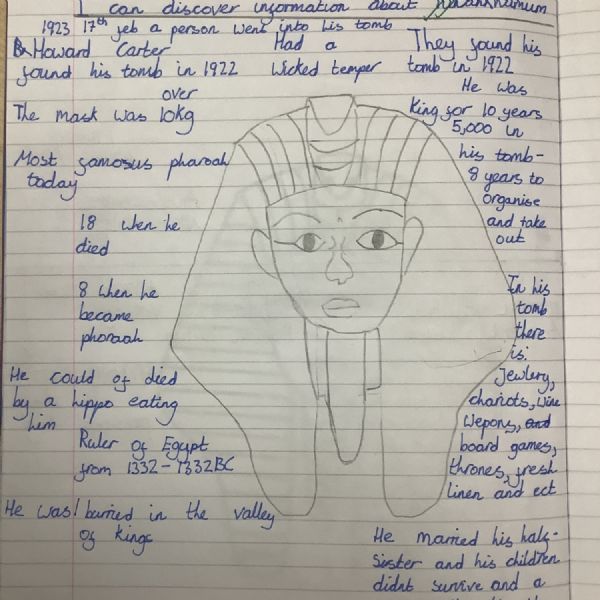 I can discover information about
1923 17th feb a person went into his tomb
Howard Carter
found his tomb in 1922
Had a
Wicked temper
They found his
tomb in 1922
over
The mask was 10kg
He was
King for 10 years
5,000 in
his tomb-
8 years to
organise
and take
out
Most famosus pharoah
today
18 when he
died
8 when he
became
pharoah
In his
tomb
there
is:
Jewlery,
chariots, wine
wepons, and
board games,
thrones, fresh
linen and ect
He could of died
by a hippo eating
him
Ruler of Egypt
from 1332-1332BC
He was burried in the valley
of kings
He married his half-
sister and his children
didnt survive and a